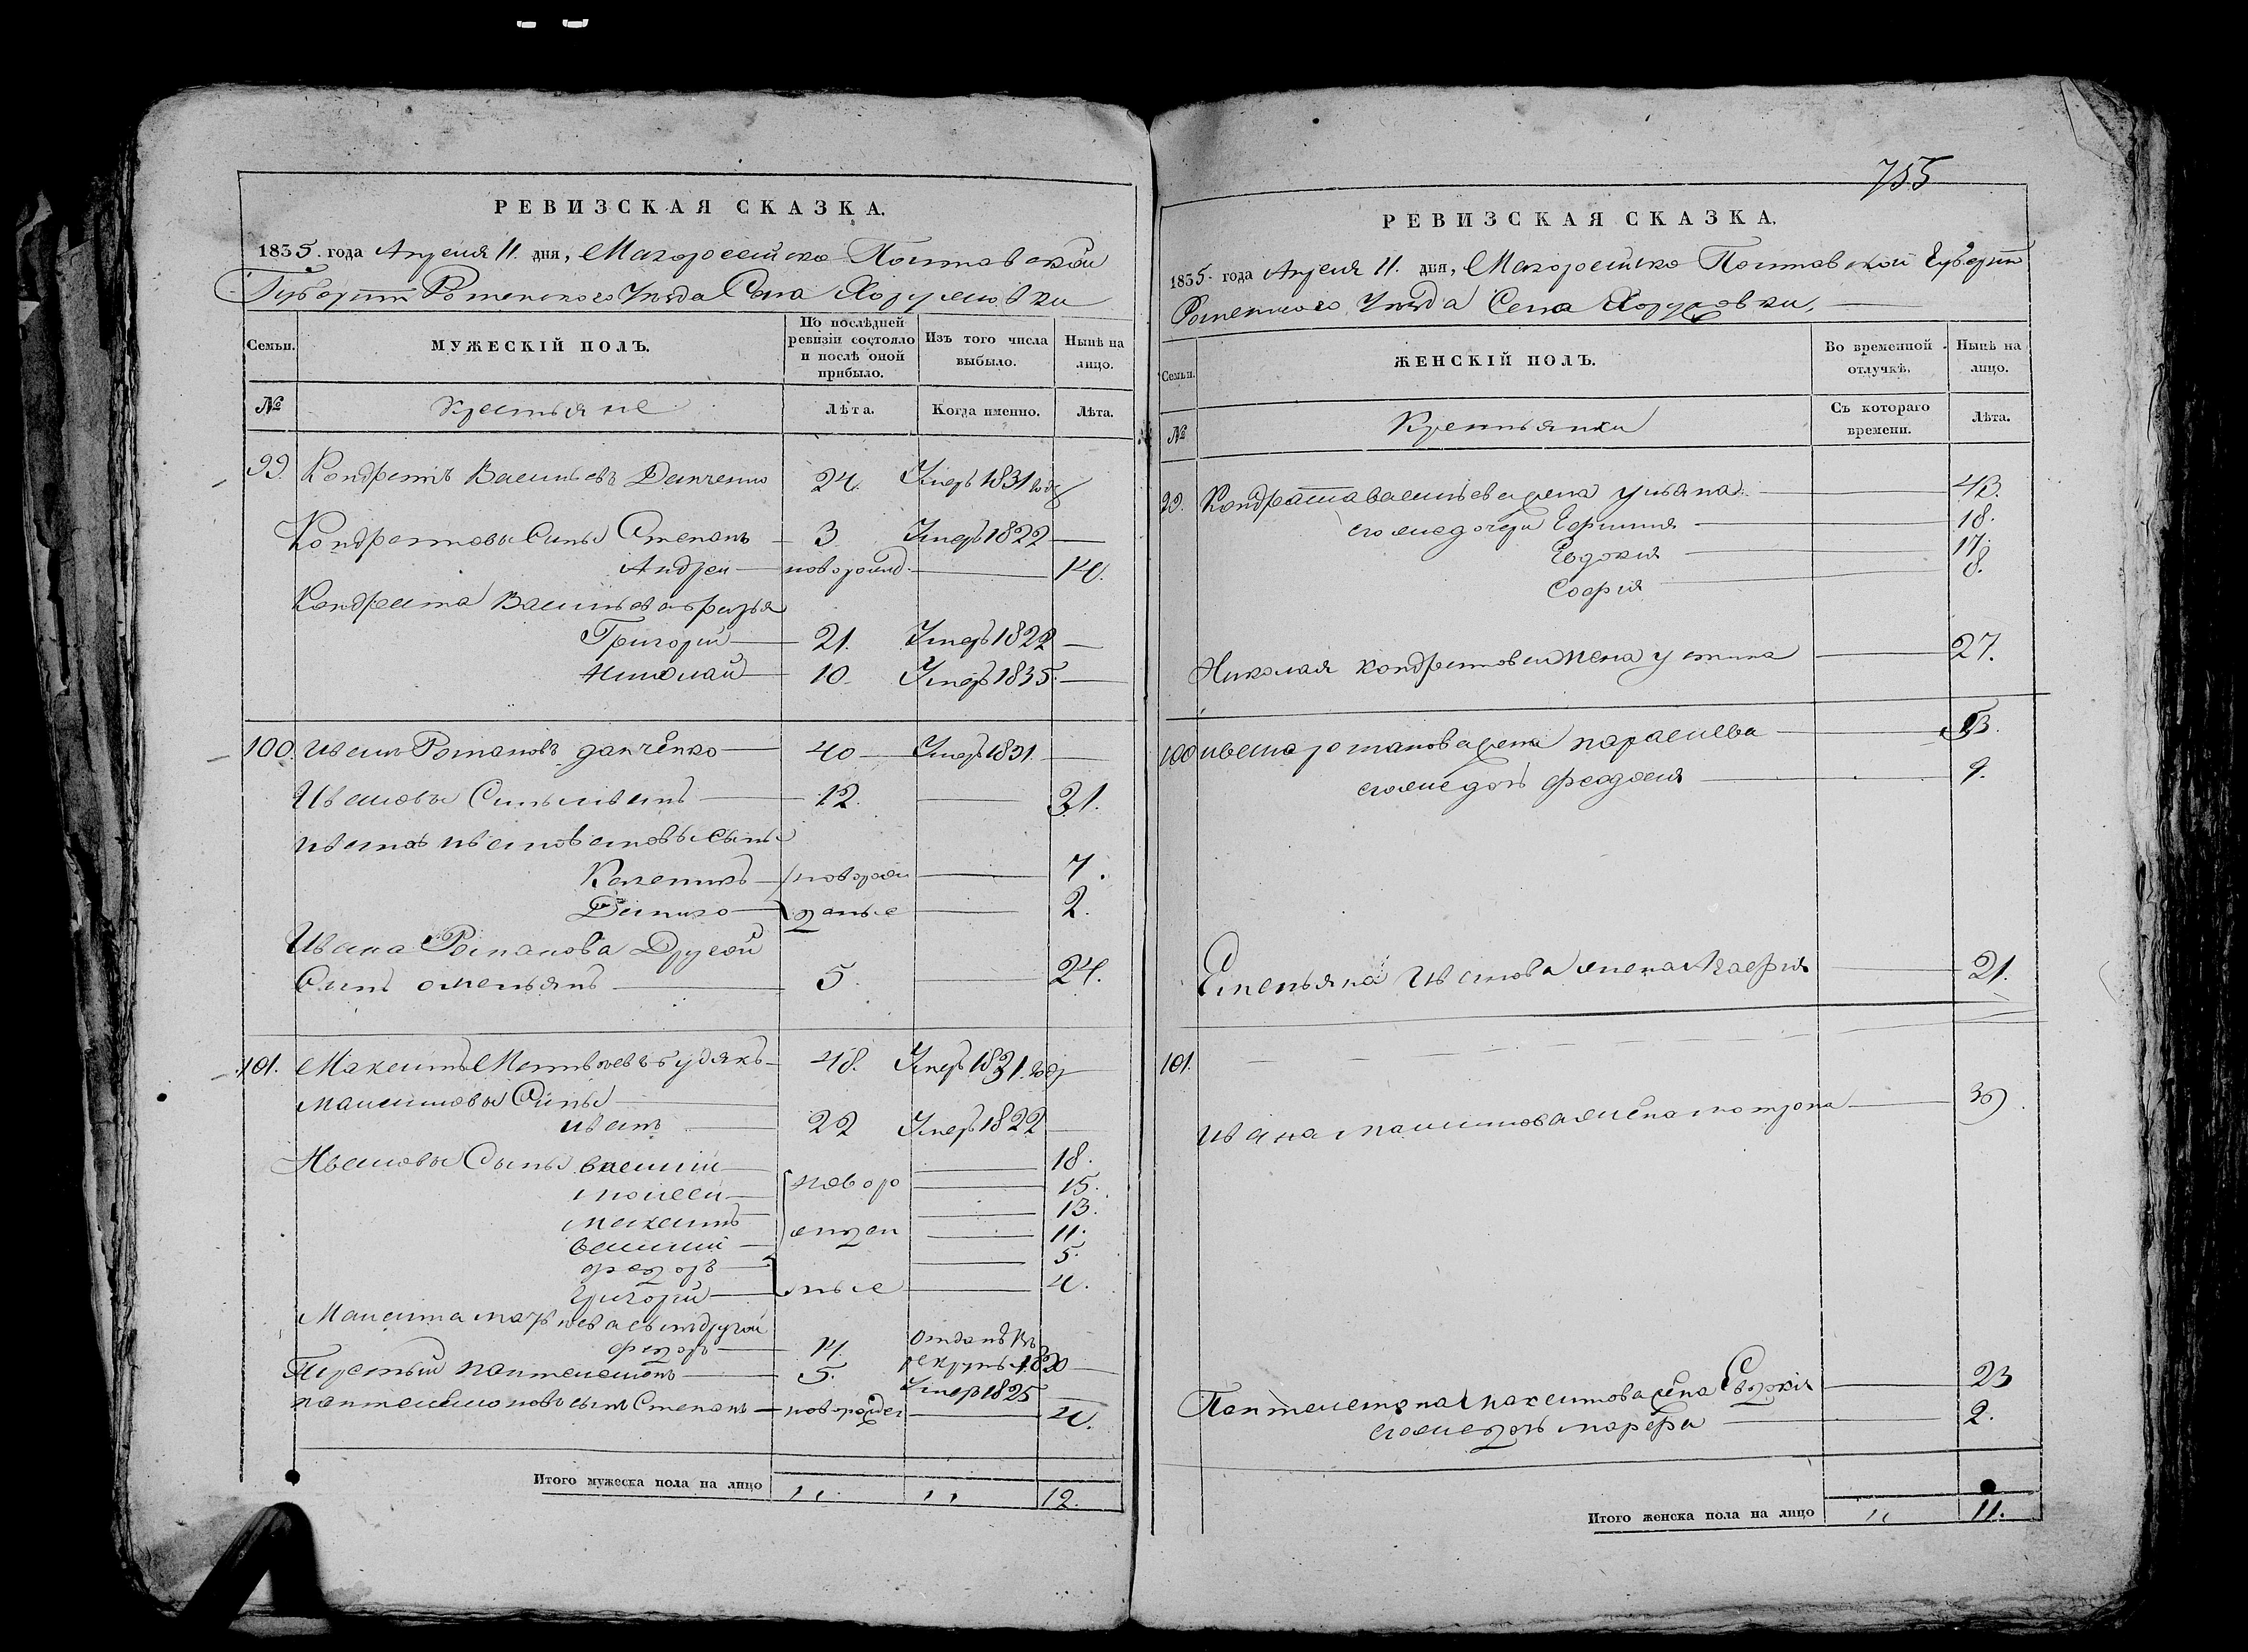 РЕВИЗСКАЯ СКАЗКА.
1835. года Апреля 11. дня, Малороссійско Полтавской
Губерніи Роменского Уезда Села Хоружовки
Семьи. МУЖЕСКІЙ ПОЛЪ. По послѣдней ревизіи состояло и послѣ оной прибыло. Изъ того числа выбыло. Нынѣ на лицо.
№ Крестьяне Лѣта. Когда именно. Лѣта.
99. Кондратъ Васильевъ Данченко 24. Умеръ 1831 года
Кондратовы Сины Степанъ 3 Умеръ 1822
Андрей новорожд. 14.
Кондрата Васильева братья
Григорій 21. Умеръ 1822
Николай 10. Умеръ 1835.
100. Иванъ Романовъ данченко 40 Умеръ 1831.
Ивановы Сины иванъ 12. 31.
ивана ивановы сыны
Калениκъ новорож 7.
Данило даные 2.
Ивана Романова Другой
Синъ омельянъ 5. 24.
101. Максимъ Матвѣевъ будякъ 48. Умеръ 1831. году
Максимовы Сины
иванъ 22 Умеръ 1822
Ивановы Сыны василій 18.
моисей новоро 15.
максимъ 13.
василій жден 11.
федоръ 5.
григорій ные 4.
Максима матвѣева сынъ другой
федоръ 14. Отданъ въ
рекруты 1820
Третьий пантелемонъ 5. Умеръ 1825
пантелемоновъ сынъ Степанъ новорожден 4.
Итого мужеска пола на лицо ,, ,, 12.
755
РЕВИЗСКАЯ СКАЗКА.
1835. года Апреля 11. дня, Малоросійско Полтавской Губерніи
Роменского Уезда Села Хоружовки,
Семьи. ЖЕНСКІЙ ПОЛЪ. Во временной отлучкѣ. Нынѣ на лицо.
№ Крестьянки Съ котораго времени. Лѣта.
99. Кондрата васильева жена ульяна 43.
его же дочери 18.
Евдокия 17.
Софія 8.
Николая кондратова жена устина 27.
100 ивана романова жена параскева 53.
его же дочь феодосия 9.
Емельяна Иванова жена 21.
101.
ивана максимова жена мотрона 39.
Пантелемона максимова жена Евдокія 23
его же дочь марфа 2.
Итого женска пола на лицо ,, 11.